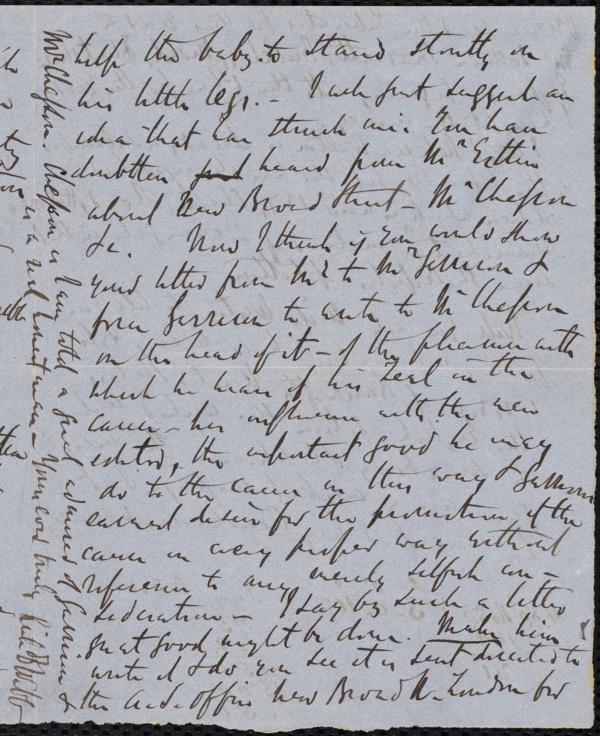 help the baby to stand stoutly on
his little legs. – I will just suggest an
idea that has struck me. You have
doubtless heard from Mr Estlin
about New Broad Street – Mr Chesson
&c. Now I think if you would show
your letter from Mr to Mr Garrison &
from Garrison to write to Mr Chesson
on the head of it – of the pleasure with
which he hears of his zeal in the
cause – his influence with the new
editor, the important good he may
do to the cause in this way & Garrison
earnest desire for the promotion of the
cause in every proper way without
reference to any merely selfish con-
sideration – I say by such a letter
great good might be done. Make him
write it & do you see it is sent directed to
the office New Broad St. London for
Mr Chesson. Chesson is I am told a great admirer of Garrison &
is a real honest man – Yours cord. truly Rich D Webb